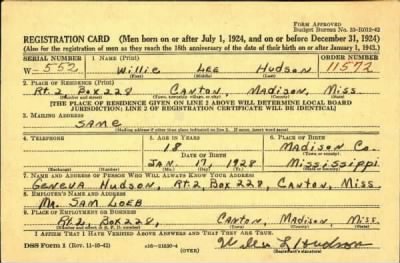 FORM APPROVED
Budget Bureau No. 33-R012-42
REGISTRATION CARD (Men born on or after July 1, 1924, and on or before December 31, 1924)
(Also for the registration of men as they reach the 18th anniversary of the date of their birth on or after January 1, 1943.)
SERIAL NUMBER 1. NAME (Print) ORDER NUMBER
W-552 Willie LEE Hudson 11572
2. PLACE OF RESIDENCE (Print)
Rt. 2 Box 228 CANTON, MADISON, MISS.
[THE PLACE OF RESIDENCE GIVEN ON LINE 2 ABOVE WILL DETERMINE LOCAL BOARD
JURISDICTION; LINE 2 OF REGISTRATION CERTIFICATE WILL BE IDENTICAL]
3. MAILING ADDRESS
SAME
[Mailing address if other than place indicated on line 2. If same, insert word same]
4. TELEPHONE 5. AGE IN YEARS 6. PLACE OF BIRTH
18 Madison Co.
DATE OF BIRTH
JAN. 17, 1928 Mississippi
7. NAME AND ADDRESS OF PERSON WHO WILL ALWAYS KNOW YOUR ADDRESS
Geneva Hudson, Rt. 2, Box 228, Canton, Miss
8. EMPLOYER'S NAME AND ADDRESS
Mr. SAM LOEB
9. PLACE OF EMPLOYMENT OR BUSINESS
Rt 2, Box 228, Canton, Madison, Miss.
I AFFIRM THAT I HAVE VERIFIED ABOVE ANSWERS AND THAT THEY ARE TRUE.
DSS Form 1 (Rev. 11-16-42) (OVER) Willie L Hudson